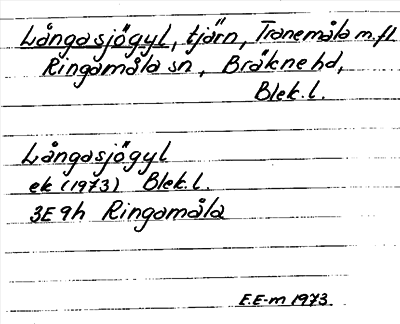 Långasjögyl, tjärn, Tranemåla m.fl
Ringamåla sn, Bräkne hd,
Blek.l.
Långasjögyl
ek (1973) Blek.l.
3E9h Ringamåla
E.E-m 1973